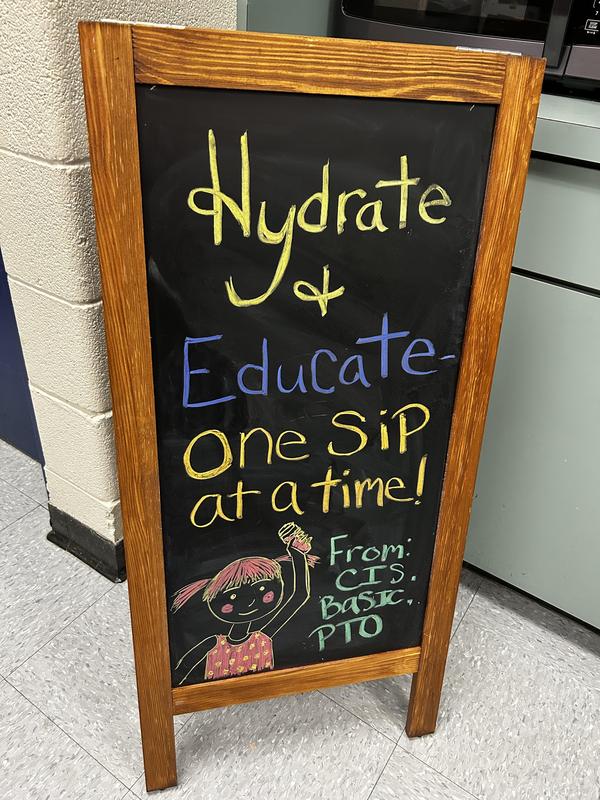 Hydrate
&
Educate-
one Sip
at a time!
From:
CIS.
BaSIC.
PTO